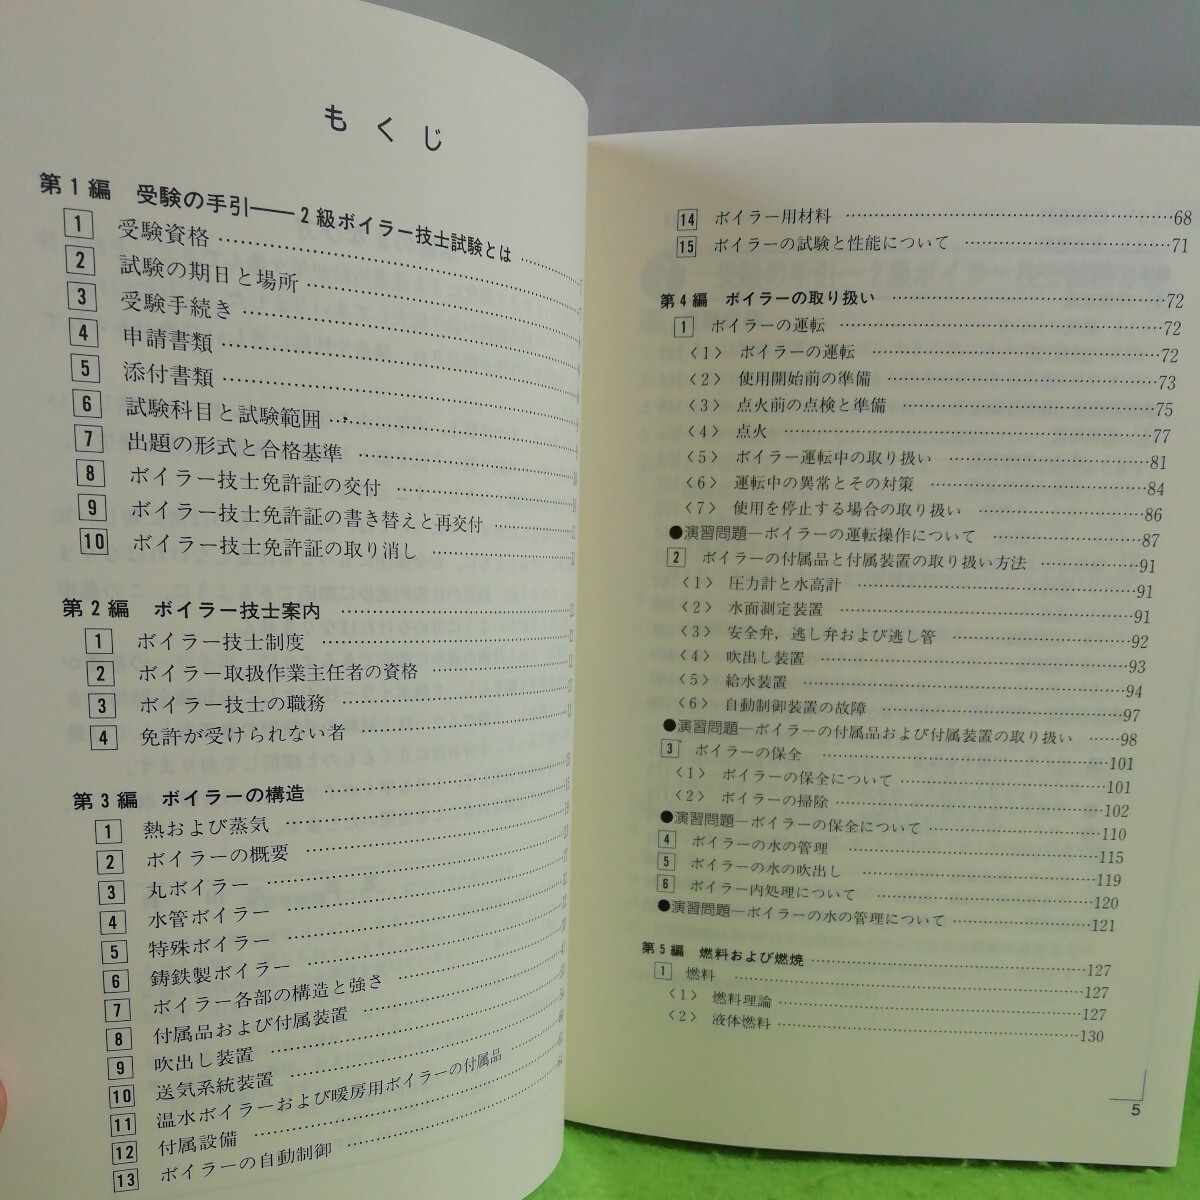 もくじ
第1編 受験の手引――2級ボイラー技士試験とは
1 受験資格
2 試験の期日と場所
3 受験手続き
4 申請書類
5 添付書類
6 試験科目と試験範囲
7 出題の形式と合格基準
8 ボイラー技士免許証の交付
9 ボイラー技士免許証の書き替えと再交付
10 ボイラー技士免許証の取り消し
第2編 ボイラー技士案内
1 ボイラー技士制度
2 ボイラー取扱作業主任者の資格
3 ボイラー技士の職務
4 免許が受けられない者
第3編 ボイラーの構造
1 熱および蒸気
2 ボイラーの概要
3 丸ボイラー
4 水管ボイラー
5 特殊ボイラー
6 鋳鉄製ボイラー
7 ボイラー各部の構造と強さ
8 付属品および付属装置
9 吹出し装置
10 送気系統装置
11 温水ボイラーおよび暖房用ボイラーの付属品
12 付属設備
13 ボイラーの自動制御
14 ボイラー用材料 68
15 ボイラーの試験と性能について 71
第4編 ボイラーの取り扱い 72
1 ボイラーの運転 72
〈1〉 ボイラーの運転 72
〈2〉 使用開始前の準備 73
〈3〉 点火前の点検と準備 75
〈4〉 点火 77
〈5〉 ボイラー運転中の取り扱い 81
〈6〉 運転中の異常とその対策 84
〈7〉 使用を停止する場合の取り扱い 86
●演習問題―ボイラーの運転操作について 87
2 ボイラーの付属品と付属装置の取り扱い方法 91
〈1〉 圧力計と水高計 91
〈2〉 水面測定装置 91
〈3〉 安全弁，逃し弁および逃し管 92
〈4〉 吹出し装置 93
〈5〉 給水装置 94
〈6〉 自動制御装置の故障 97
●演習問題―ボイラーの付属品および付属装置の取り扱い 98
3 ボイラーの保全 101
〈1〉 ボイラーの保全について 101
〈2〉 ボイラーの掃除 102
●演習問題―ボイラーの保全について 110
4 ボイラーの水の管理 115
5 ボイラーの水の吹出し 119
6 ボイラー内処理について 120
●演習問題―ボイラーの水の管理について 121
第5編 燃料および燃焼 127
1 燃料 127
〈1〉 燃料理論 127
〈2〉 液体燃料 130
5